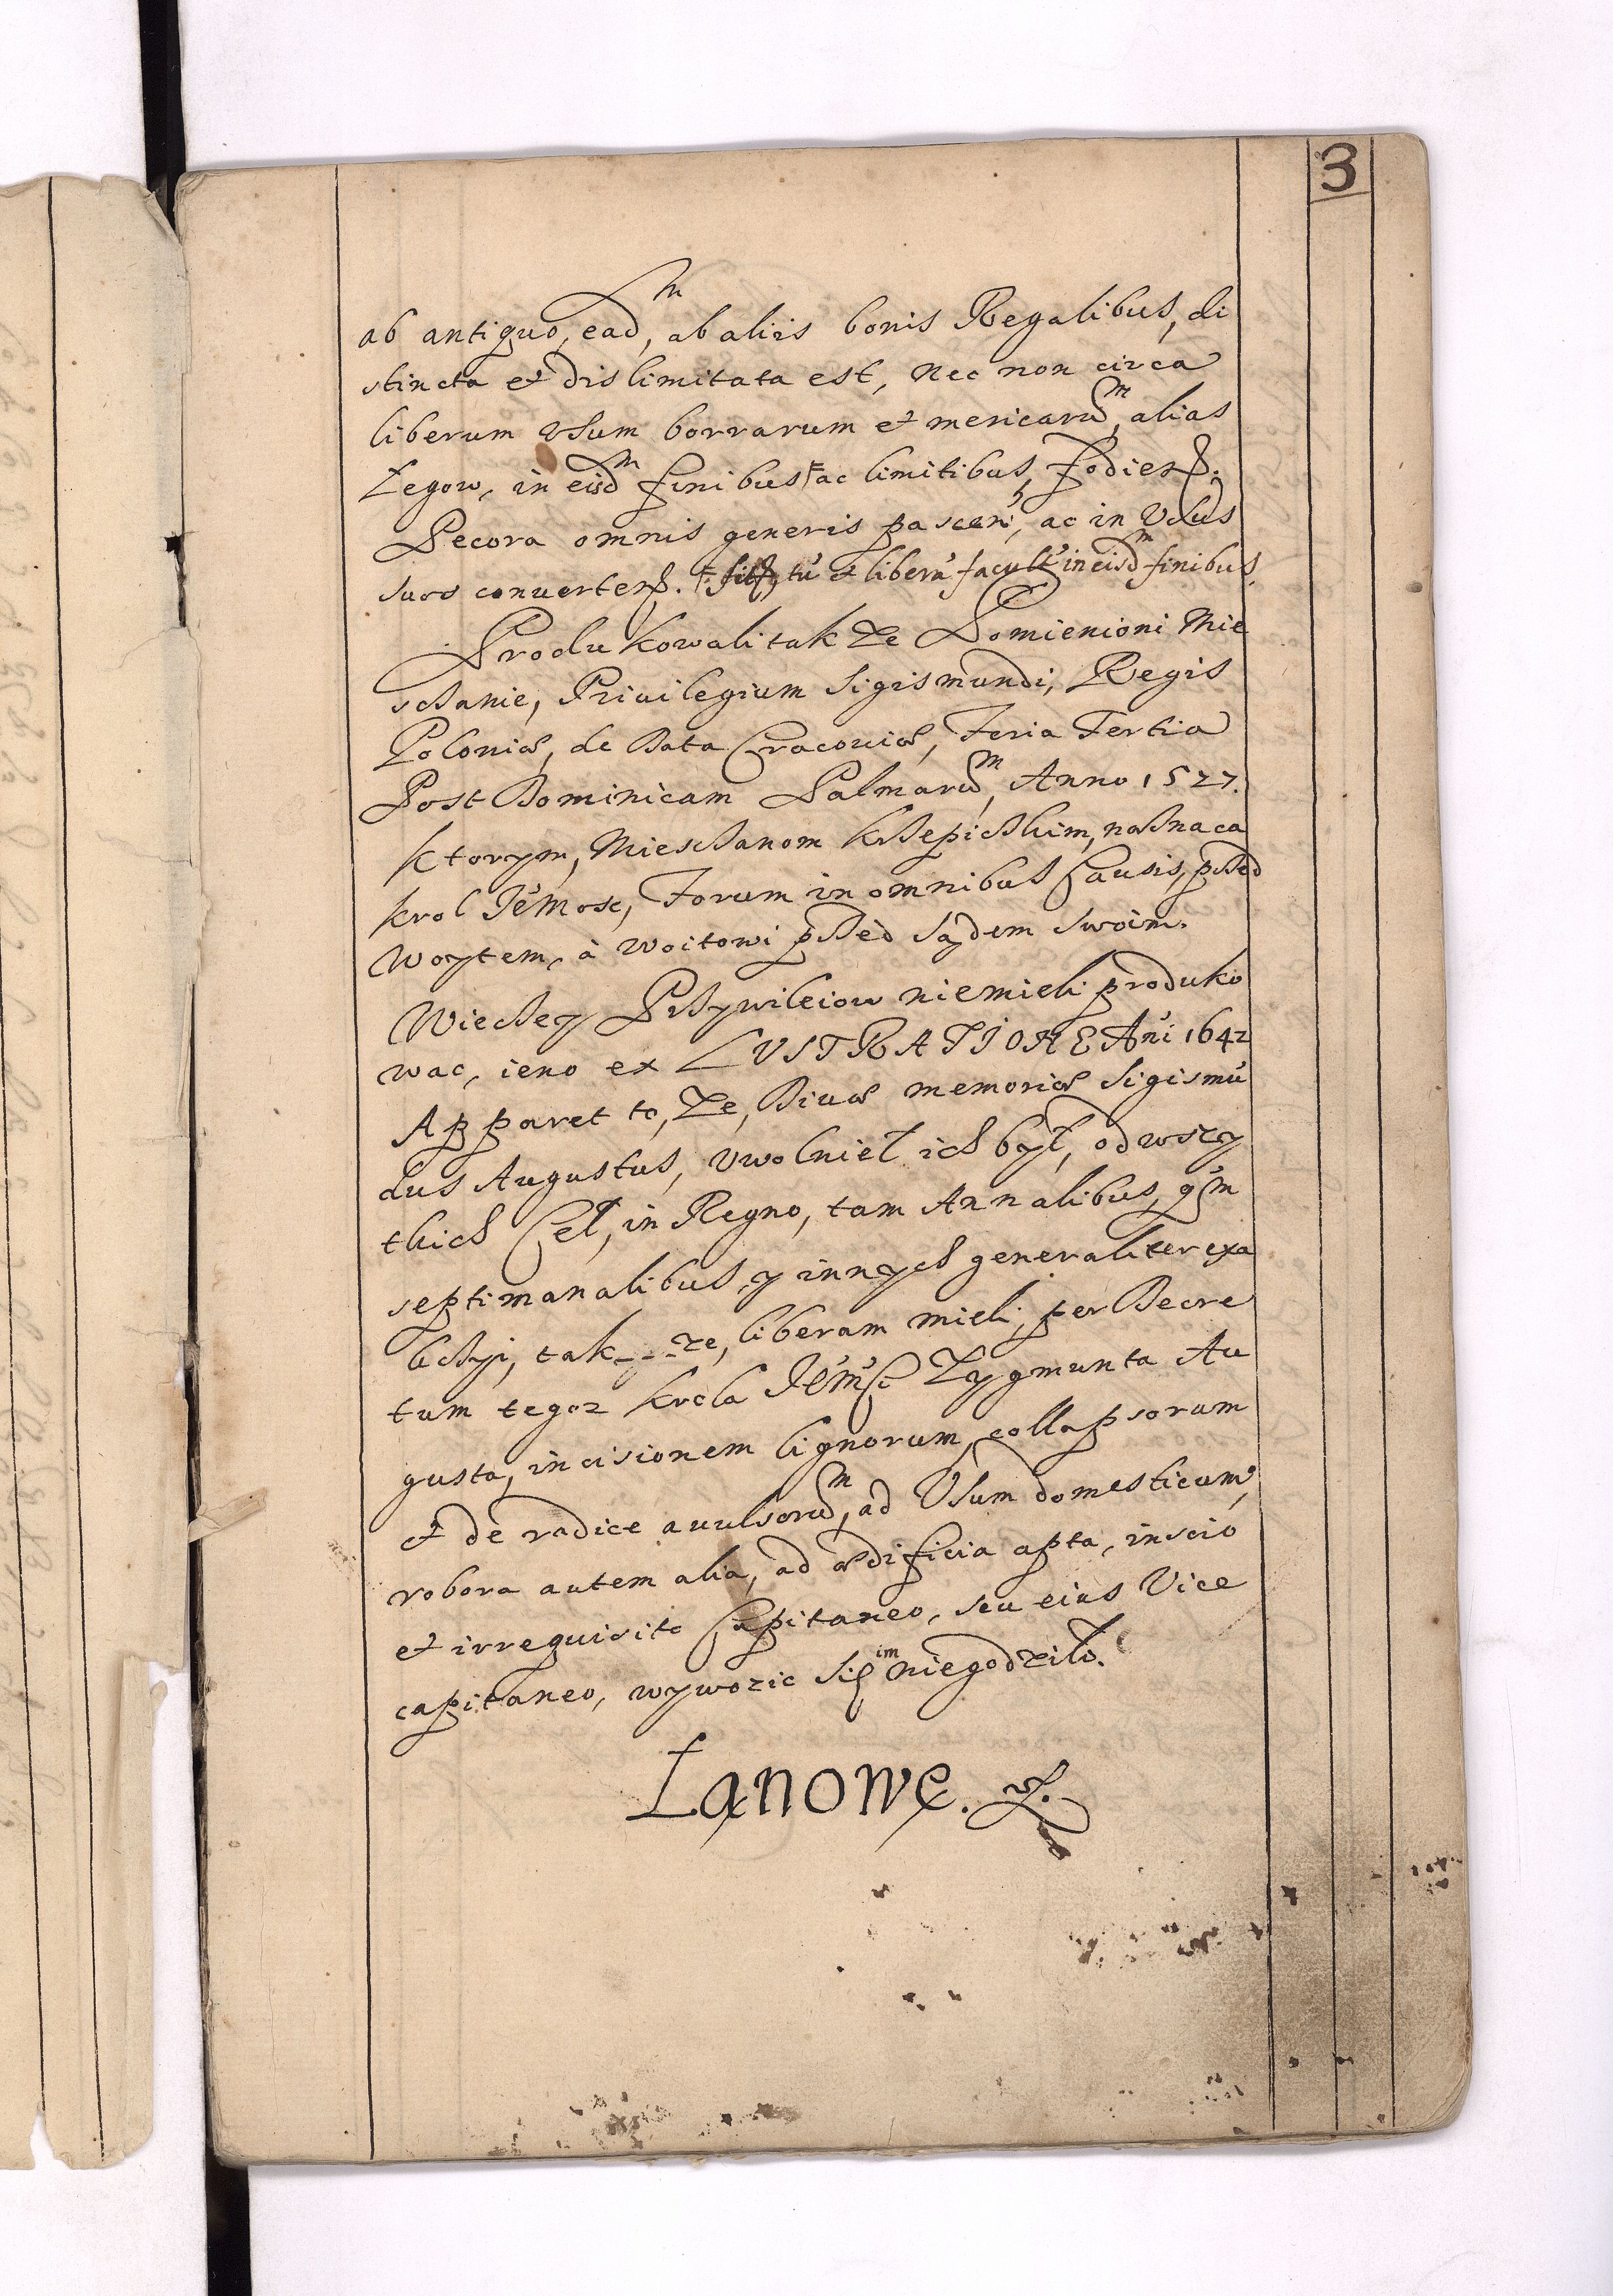 3
ab antiquo, ead^m, ab aliis bonis Regalibus, di
stincta et dislimitata est, nec non circa
liberum vsum borrarum et mericaru^m, alias
Łegow, in eisd^m finibus ac limitibus, fodien.
Pecora omnis generis pasceñ, ac in Vsus
suos conuerten. tú et liberá facult in eisd^m finibus.
Produkowali tak ze Pomienioni Mie
sczanie, Priuilegium Sigismundi, Regis
Poloniæ, de Data Cracouiæ, Feria Tertia
Post Dominicam Palmaru^m, Anno 1527.
ktorym, Miesczanom krzepiczkim, naznacza
krol Jé̃mosc, Forum in omnibus Causis, przed
Woytem, à Woitowi przed Sądem swoim.
Wieczey Przywileiow niemieli produko
wac, ieno ex LVSTRATIONE Añi 1642
Apparet to, ze, Diuæ memoriæ Sigismú
dus Augustus, vwolnieł ich był, od wszy
tkich Ceł, in Regno, tam Annalibus, q^m
septimanalibus, y innych generaliter exa
kczyi, tak---ze, liberam mieli, per Decre
tum tegoz krola Jé̃mści Zygmunta Au
gusta, incisionem lignorum, collapsorum
et de radice auulsoru^m, ad Vsum domesticum,
robora autem alia, ad ædificia apta, inscio
et irrequisito Capitaneo, seu eius Vice
capitaneo, wywozic się im niegodziło.
Łanowe.